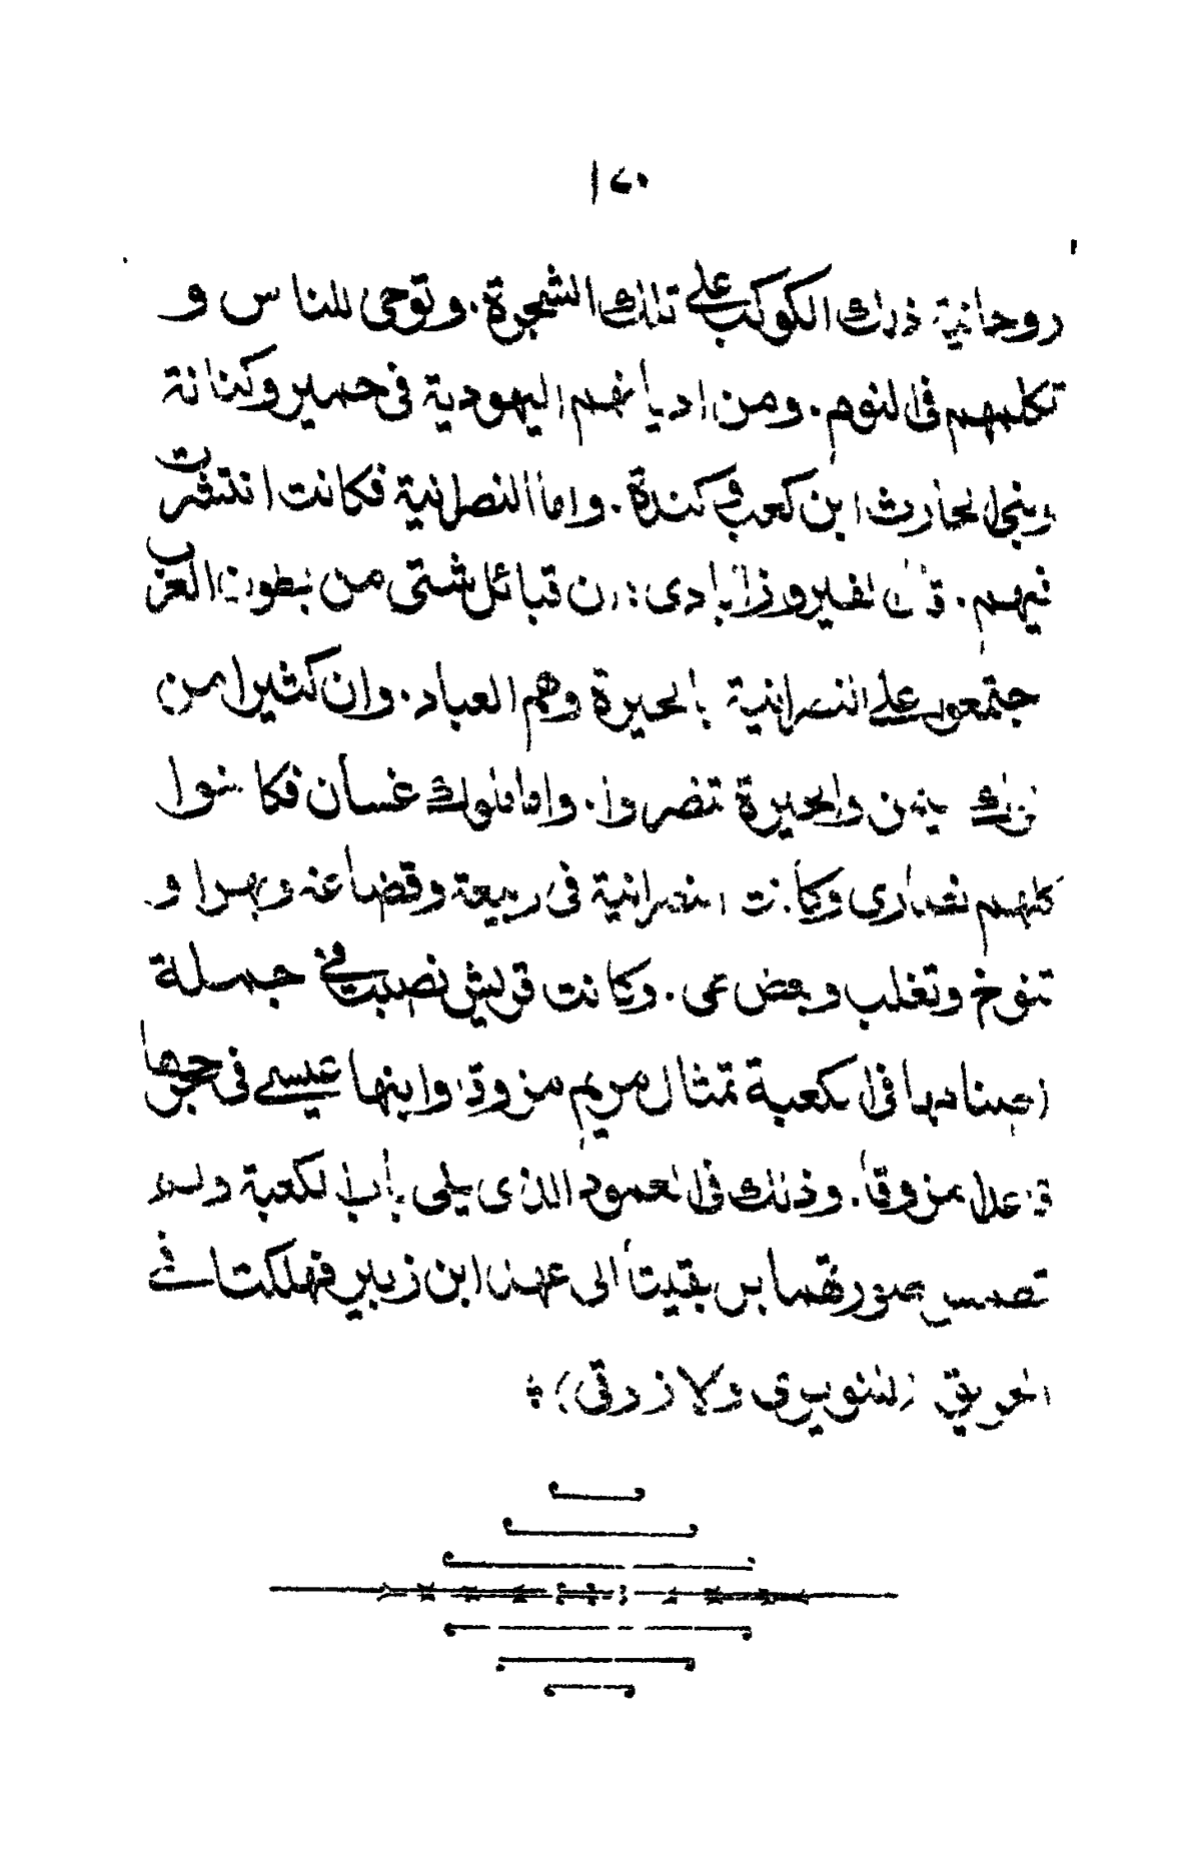 ١٧٠
روحانية ذلك الكوكب على تلك الشجرة. وتوحى للناس و
تكلمهم فى النوم. ومن اديانهم اليهودية فى حمير وكنانة
وبنى الحارث ابن كعب وكندة. واما النصرانية فكانت انتشرت
فيهم. قال الفيروزابادى: ان قبائل شتى من بطون العرب
اجتمعوا على النصرانية بالحيرة وهم العباد. وان كثيرا من
ملوك اليمن والحيرة تنصروا. واما ملوك غسان فكانوا
كلهم نصارى وكانت النصرانية فى ربيعة وقضاعه وبهرا و
تنوخ وتغلب وبعض طى. وكانت قريش نصبت فى جملة
اصنامها فى الكعبة تمثال مريم مزوقا وابنها عيسى فى حجرها
قاعدا مزوقا. وذلك فى العمود الذى يلى باب الكعبة ولم
تطمس صورتهما بل بقيتا الى عهد ابن زبير فهلكتا فى
الحريق (للنويرى ولازرقى) :